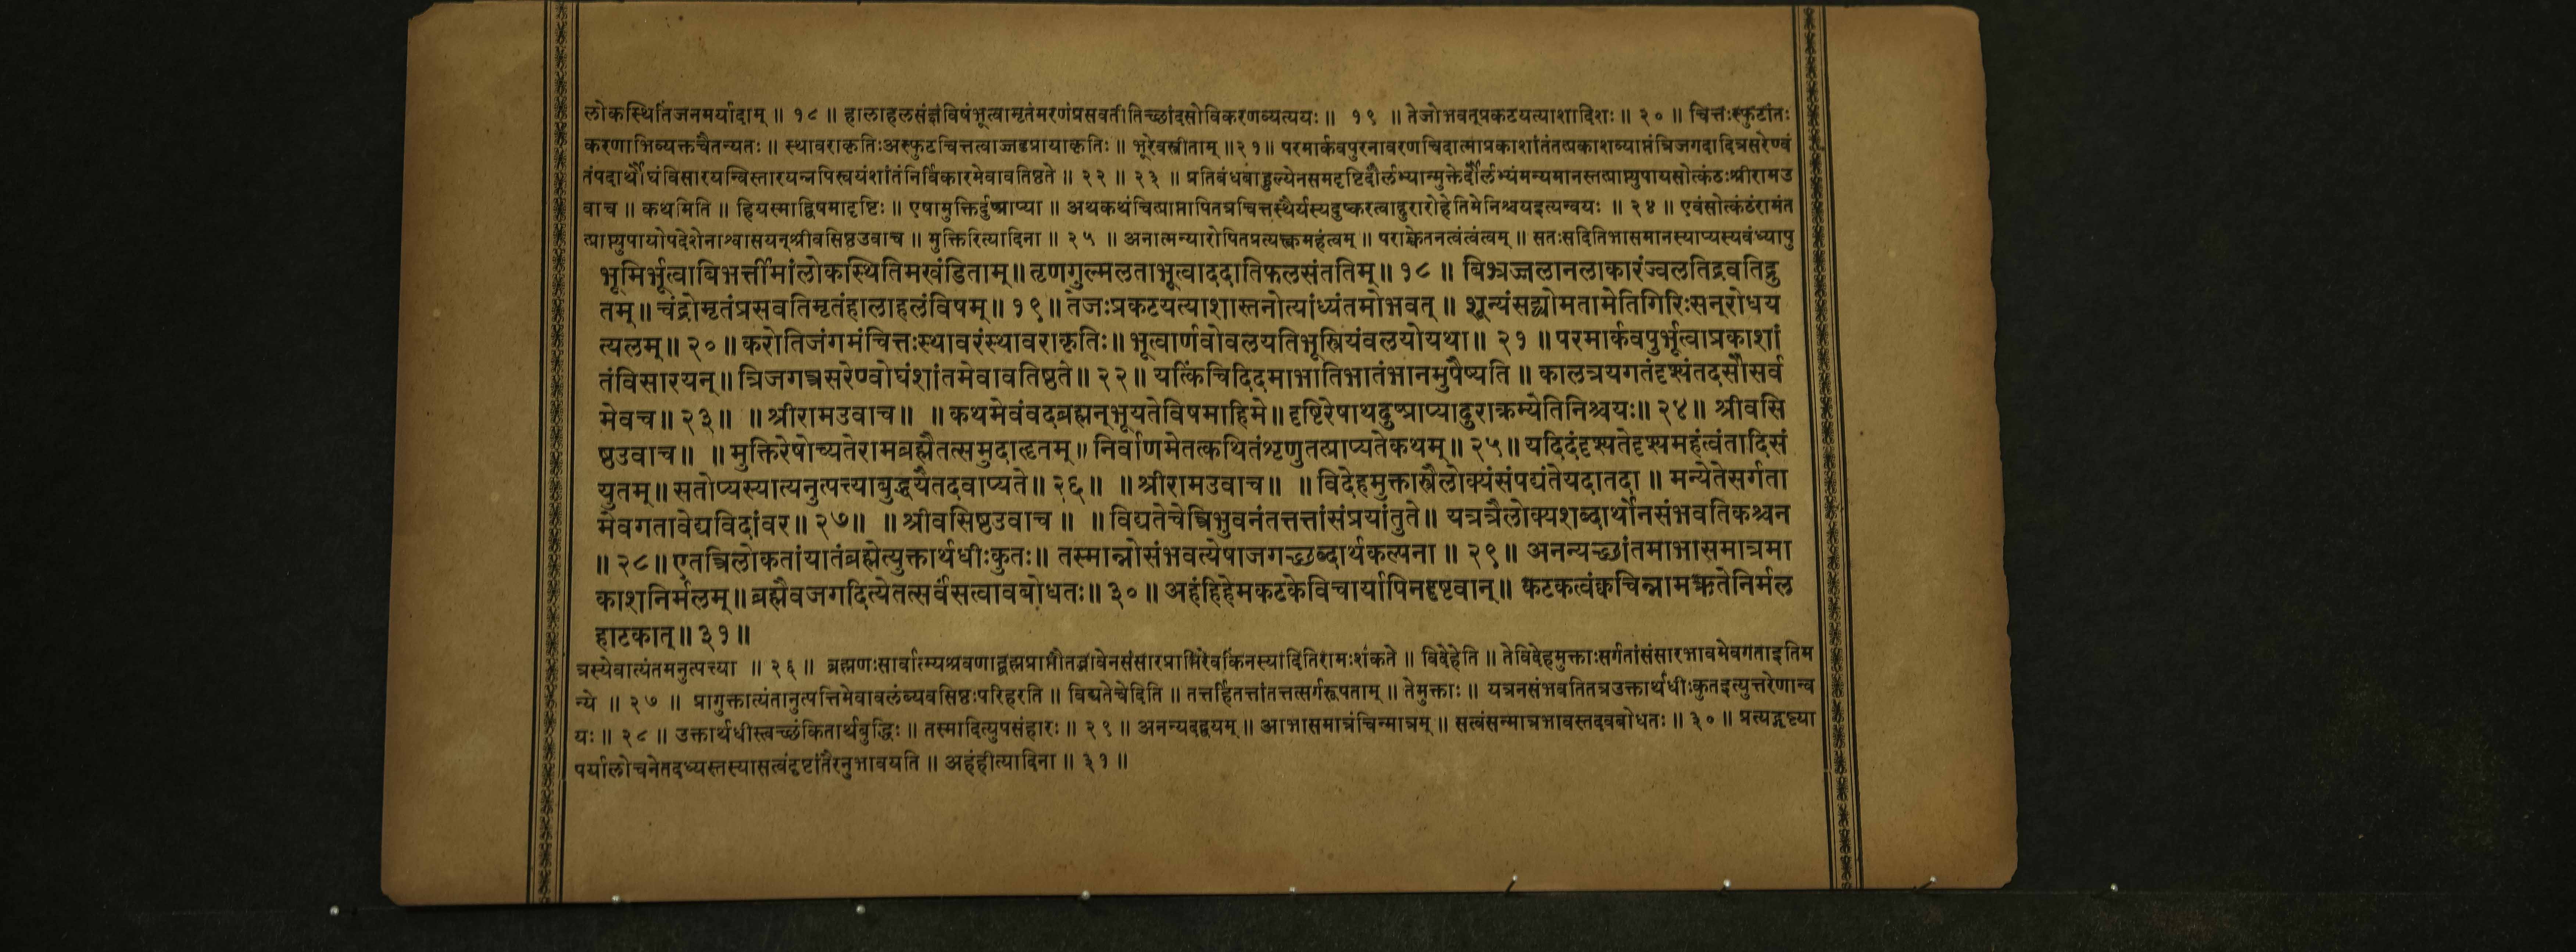 लोकस्थितिंजनमर्यादाम् ॥ १८ ॥ हालाहलसंज्ञंविषंभूत्वामृतंमरणंप्रसवतीतिच्छांदसोविकरणव्यत्ययः ॥ १९ ॥ तेजोभवन्प्रकटयत्याशादिशः ॥ २० ॥ चित्तःस्फुटांतः
करणाभिव्यक्तचैतन्यतः ॥ स्थावराकृतिःअस्फुटचित्तत्वाज्जडप्रायाकृतिः ॥ भूरेवस्त्रीताम् ॥२१॥ परमार्कवपुरनावरणचिदात्माप्रकाशांतंतत्प्रकाशव्याप्तंत्रिजगदादित्रसरेण्वं
तंपदार्थौघंविसारयन्विस्तारयन्नपिस्वयंशांतंनिर्विकारमेवावतिष्ठते ॥ २२ ॥ २३ ॥ प्रतिबंधबाहुल्येनसमदृष्टिदौर्लभ्यान्मुक्तेर्दौर्लभ्यंमन्यमानस्तत्प्राप्त्युपायसोत्कंठःश्रीरामउ
वाच ॥ कथमिति ॥ हियस्माद्विषमादृष्टिः ॥ एषामुक्तिर्दुष्प्राप्या ॥ अथकथंचित्प्राप्तापितत्रचित्तस्थैर्यस्यदुष्करत्वाद्दुरारोहेतिमेनिश्चयइत्यन्वयः ॥ २४ ॥ एवंसोत्कंठंरामंत
त्प्राप्त्युपायोपदेशेनाश्वासयन्श्रीवसिष्ठउवाच ॥ मुक्तिरित्यादिना ॥ २५ ॥ अनात्मन्यारोपितप्रत्यक्त्वमहंत्वम् ॥ पराक्चेतनत्वंत्वंत्वम् ॥ सतःसदितिभासमानस्याप्यस्यबंध्यापु
भूमिर्भूत्वाबिभर्त्तीमांलोकस्थितिमखंडिताम् ॥ तृणगुल्मलताभूत्वाददातिफलसंततिम् ॥ १८ ॥ बिभ्रज्जलानलाकारंज्वलतिद्रवतिद्रु
तम् ॥ चंद्रोमृतंप्रसवतिमृतंहालाहलंविषम् ॥ १९ ॥ तेजःप्रकटयत्याशास्तनोत्यांध्यंतमोभवत् ॥ शून्यंसद्व्योमतामेतिगिरिःसन्रोधय
त्यलम् ॥ २० ॥ करोतिजंगमंचित्तःस्थावरंस्थावराकृतिः ॥ भूत्वार्णवोवलयतिभूस्त्रियंवलयोयथा ॥ २१ ॥ परमार्कवपुर्भूत्वाप्रकाशां
तंविसारयन् ॥ त्रिजगत्त्रसरेण्वोघंशांतमेवावतिष्ठते ॥ २२ ॥ यत्किंचिदिदमाभातिभातंभानमुपैष्यति ॥ कालत्रयगतंदृश्यंतदसौसर्व
मेवच ॥ २३ ॥ ॥ श्रीरामउवाच ॥ ॥ कथमेवंवदब्रह्मन्भूयतेविषमाहिमे ॥ दृष्टिरेषाथदुष्प्राप्यादुराक्रम्येतिनिश्चयः ॥ २४ ॥ श्रीवसि
ष्ठउवाच ॥ ॥ मुक्तिरेषोच्यतेरामब्रह्मैतत्समुदाहृतम् ॥ निर्वाणमेतत्कथितंशृणुतत्प्राप्यतेकथम् ॥ २५ ॥ यदिदंदृश्यतेदृश्यमहंत्वंतादिसं
युतम् ॥ सतोप्यस्यात्यनुत्पत्त्याबुद्धयैतदवाप्यते ॥ २६ ॥ ॥ श्रीरामउवाच ॥ ॥ विदेहमुक्तास्त्रैलोक्यंसंपद्यंतेयदातदा ॥ मन्येतेसर्गता
मेवगतावेद्यविदांवर ॥ २७ ॥ ॥ श्रीवसिष्ठउवाच ॥ ॥ विद्यतेचेत्त्रिभुवनंतत्तत्तांसंप्रयांतुते ॥ यत्रत्रैलोक्यशब्दार्थोनसंभवतिकश्चन
॥ २८ ॥ एतत्त्रिलोकतांयातंब्रह्मेत्युक्तार्थधीःकुतः ॥ तस्मान्नोसंभवत्येषाजगच्छब्दार्थकल्पना ॥ २९ ॥ अनन्यच्छांतमाभासमात्रमा
काशनिर्मलम् ॥ ब्रह्मैवजगदित्येतत्सर्वंसत्वावबोधतः ॥ ३० ॥ अहंहिहेमकटकेविचार्यापिनदृष्टवान् ॥ कटकत्वंक्वचिन्नामऋतेनिर्मल
हाटकात् ॥ ३१ ॥
त्रस्येवात्यंतमनुत्पत्त्या ॥ २६ ॥ ब्रह्मणःसार्वात्म्यश्रवणाद्ब्रह्मप्राप्तौतद्भावेनसंसारप्राप्तिरेवकिंनस्यादितिरामःशंकते ॥ विदेहेति ॥ तेविदेहमुक्ताःसर्गतांसंसारभावमेवगताइतिम
न्ये ॥ २७ ॥ प्रागुक्तात्यंतानुत्पत्तिमेवावलंब्यवसिष्ठःपरिहरति ॥ विद्यतेचेदिति ॥ तत्तर्हितत्तांतत्तत्सर्गरूपताम् ॥ तेमुक्ताः ॥ यत्रनसंभवतितत्रउक्तार्थधीःकुतइत्युत्तरेणान्व
यः ॥ २८ ॥ उक्तार्थधीस्त्वच्छंकितार्थबुद्धिः ॥ तस्मादित्युपसंहारः ॥ २९ ॥ अनन्यदद्वयम् ॥ आभासमात्रंचिन्मात्रम् ॥ सत्वंसन्मात्रभावस्तदवबोधतः ॥ ३० ॥ प्रत्यग्दृष्ट्या
पर्यालोचनेतदध्यस्तस्यासत्वंदृष्टांतैरनुभावयति ॥ अहंहीत्यादिना ॥ ३१ ॥